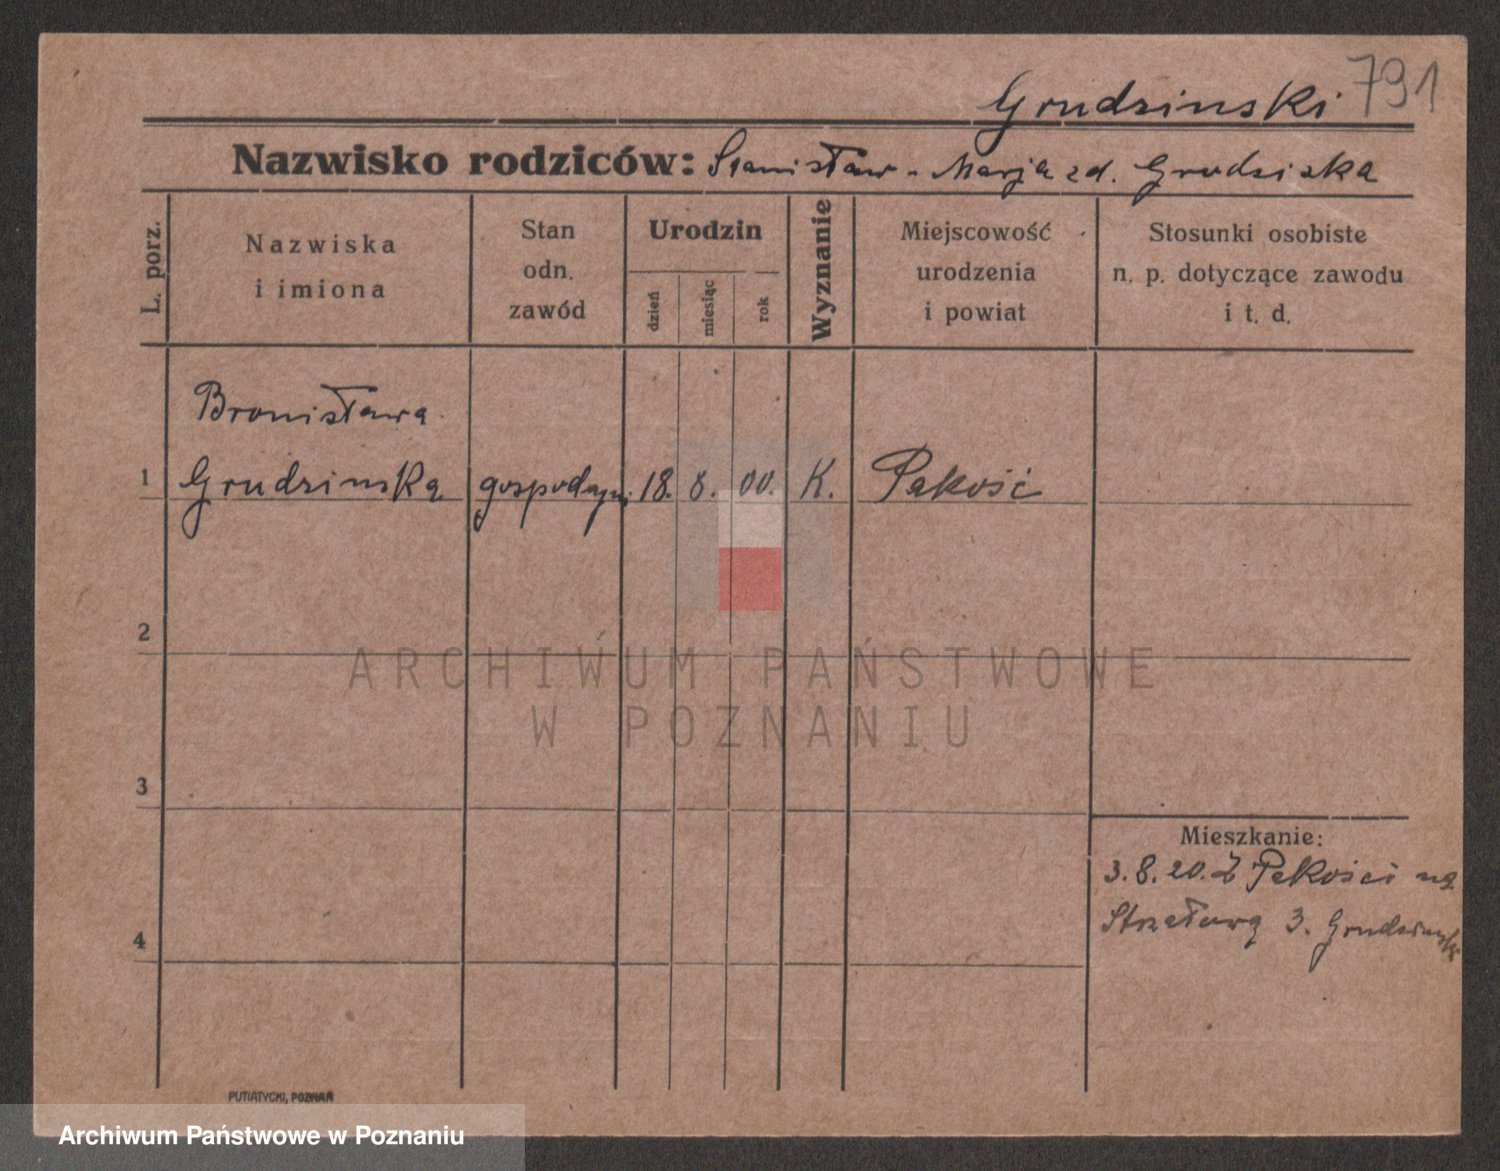 Grudzinski 791
Nazwisko rodziców: Stanisław - Marja zd. Grudziska
L. porz.
Nazwiska
i imiona
Stan
odn.
zawód
Urodzin
dzień
miesiąc
rok
Wyznanie
Miejscowość
urodzenia
i powiat
Stosunki osobiste
n. p. dotyczące zawodu
i t. d.
Bronisława
1 Grudzinska gospodyni 18. 8. 00. K. Pakość
2
3
4
Mieszkanie:
3.8.20. Z Pakości na
Strzałową 3. Grudzinska
PUTIATYCKI, POZNAŃ
ARCHIWUM PAŃSTWOWE
W POZNANIU
Archiwum Państwowe w Poznaniu